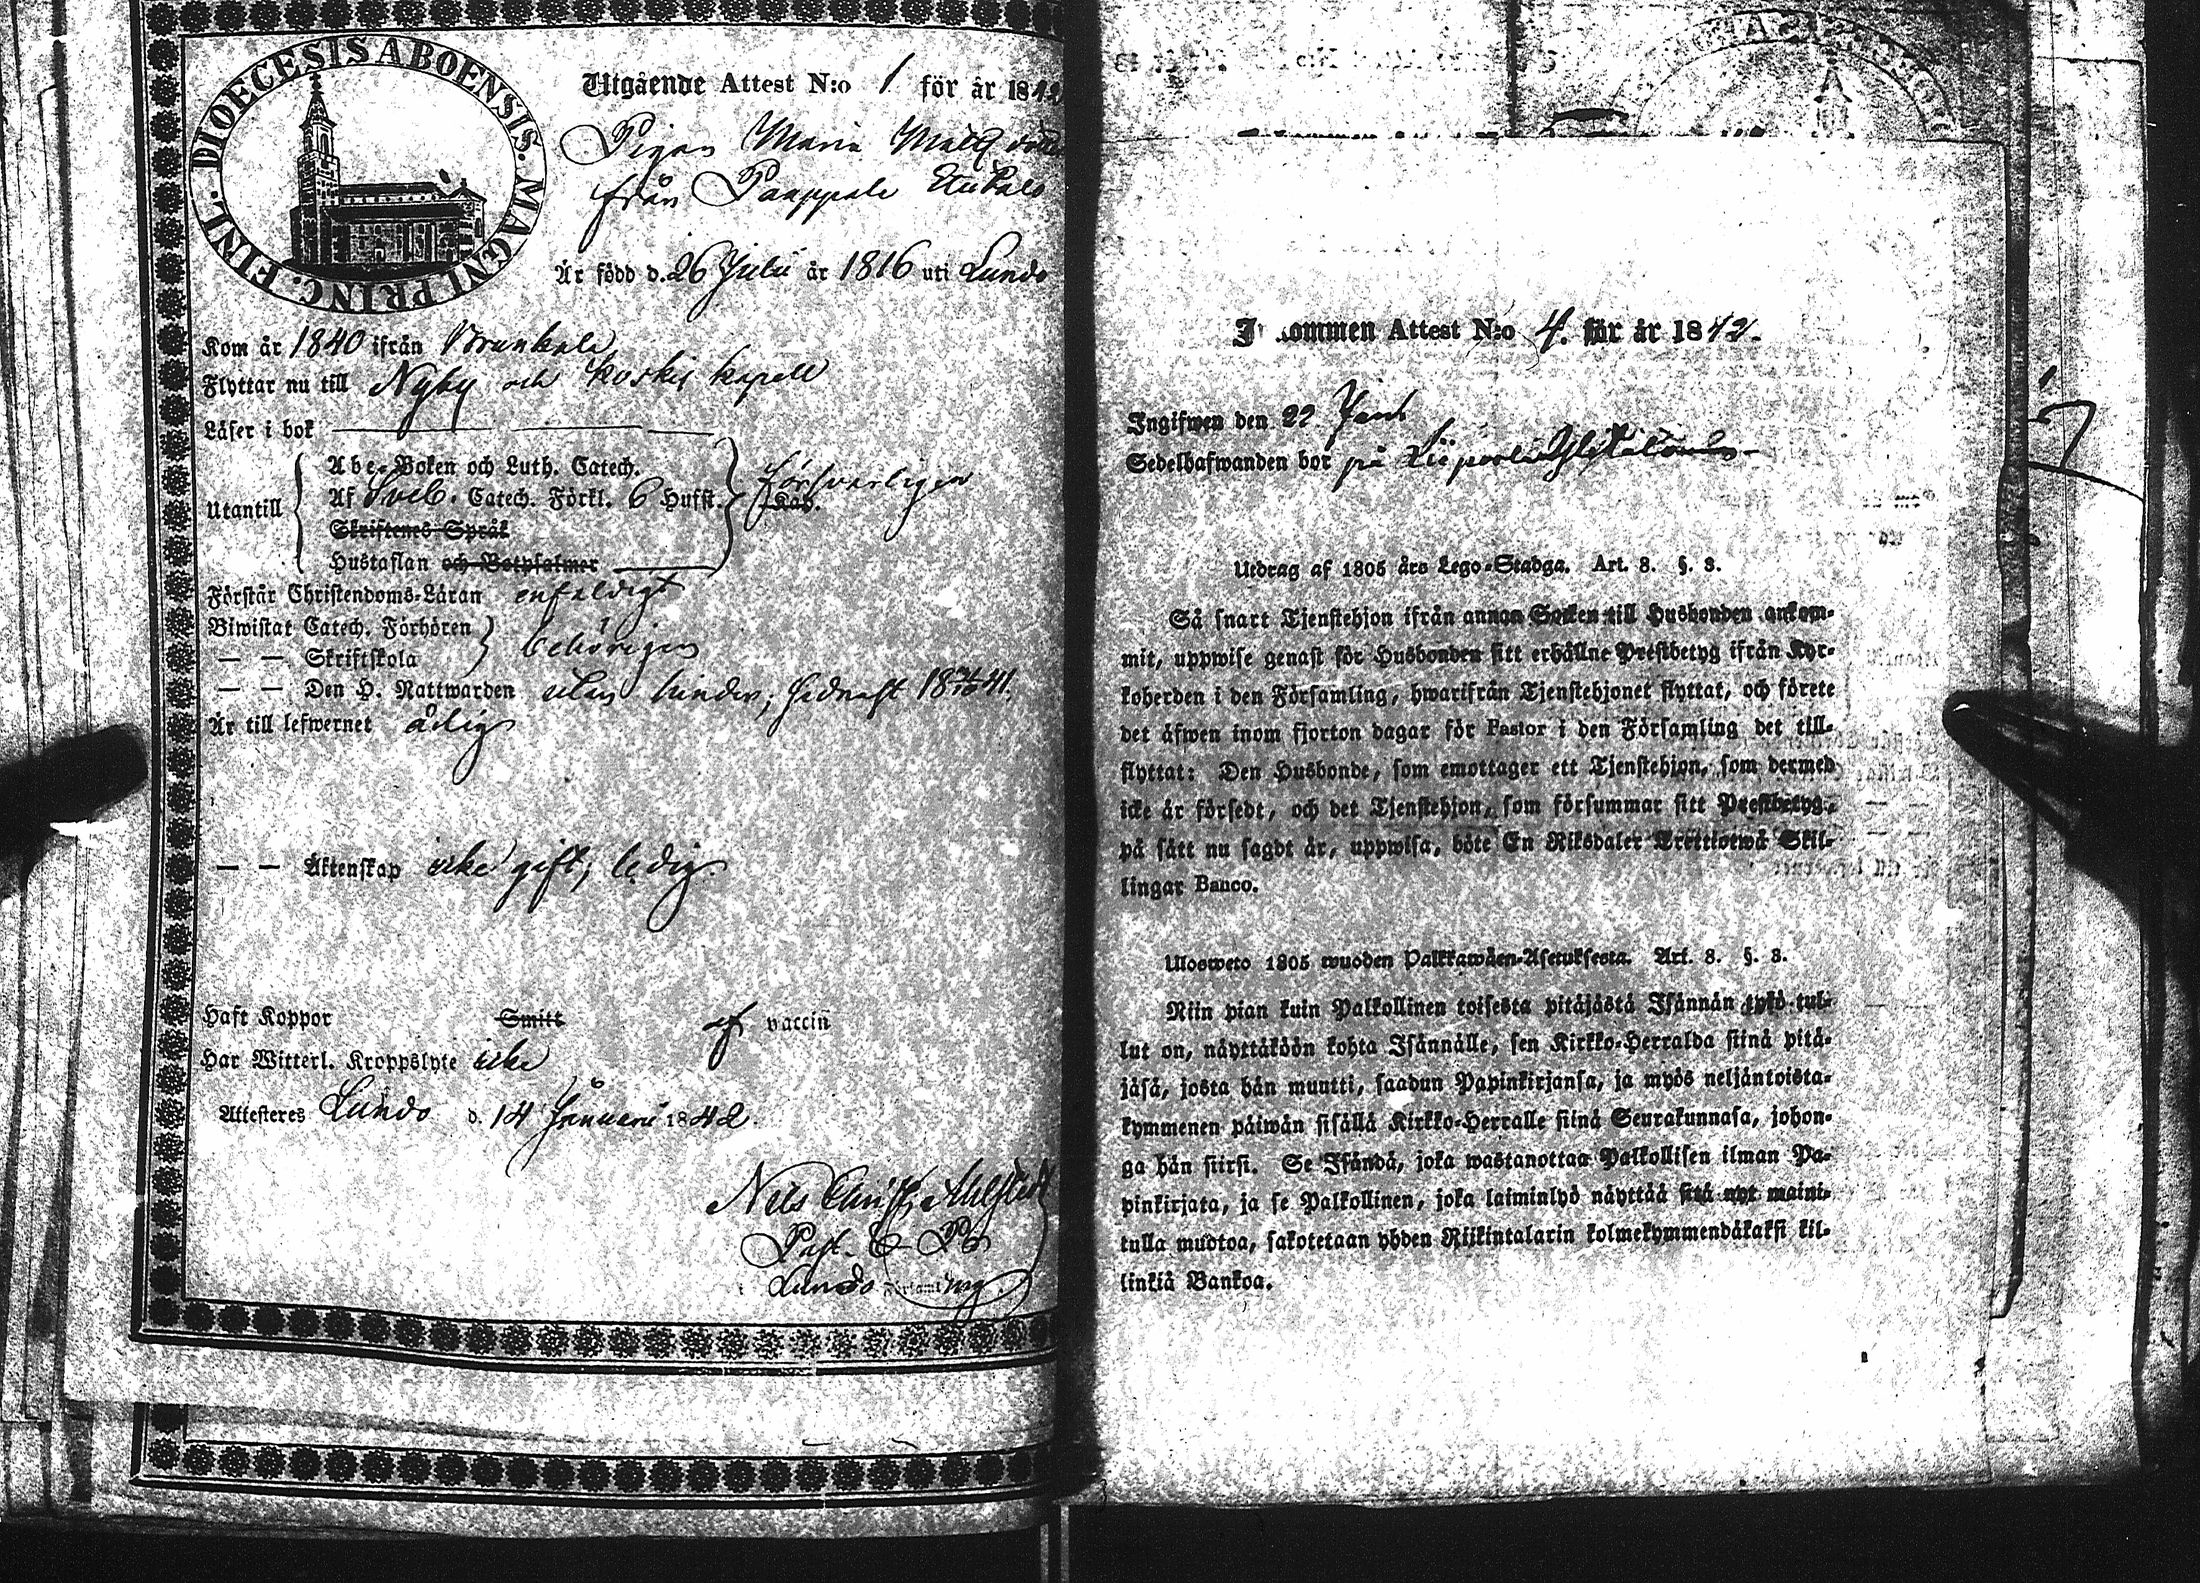 FINL. DIOECESIS ABOENSIS. MAGNI PRINC.
Utgående Attest N:o 1 för år 1842
Pigan Maria Matts dotter
från Paappala
Är född d. 26 Julii år 1816 uti Lundo
Kom år 1840 ifrån
Flyttar nu till Nyby och Koskis kapell
Läser i bok
Utantill
Abc-Boken och Luth. Catech.
Af Sveb. Catech. Förkl. 6 Hufst. försvarligen
Kap.
Skriftenes Språk
Hustaflan och Botpsalmer
Förstår Christendoms-Läran enfaldigt
Biwistat Catech. Förhören behörigen
— — Skriftskola
— — Den H. Nattwarden utan hinder; sednast 18 41.
Är till lefwernet ärlig
— — Äktenskap icke gift, ledig.
Haft Koppor Smitt af vaccin
Har Witterl. Kroppslyte icke
Attesteres Lundo d. 14 Januarii 1842.
Nils Christ. Ahlstedt
Past. & Pr
i Lundo Församling
Inkommen Attest N:o 4. för år 1842.
Ingifwen den 22 Jan.
Sedelhafwanden bor på
Utdrag af 1805 års Lego-Stadga. Art. 8. §. 3.
Så snart Tjenstehjon ifrån annan Socken till Husbonden ankom-
mit, uppwise genast för Husbonden sitt erhållne Prestbetyg ifrån Kyr-
koherden i den Församling, hwarifrån Tjenstehjonet flyttat, och förete
det äfwen inom fjorton dagar för Pastor i den Församling det till-
flyttat: Den Husbonde, som emottager ett Tjenstehjon, som dermed
icke är försedt, och det Tjenstehjon, som försummar sitt Prestbetyg,
på sätt nu sagdt är, uppwisa, böte En Riksdaler Trettiotwå Skil-
lingar Banco.
Ulosweto 1805 wuoden Palkkawäen-Asetuksesta. Art. 8. §. 3.
Niin pian kuin Palkollinen toisesta pitäjästä Isännän tykö tul-
lut on, näyttäköön kohta Isännälle, sen Kirkko-Herralda siinä pitä-
jäsä, josta hän muutti, saadun Papinkirjansa, ja myös neljäntoista-
kymmenen päiwän sisällä Kirkko-Herralle siinä Seurakunnasa, johon-
ga hän siirsi. Se Isändä, joka wastanottaa Palkollisen ilman Pa-
pinkirjata, ja se Palkollinen, joka laiminlyö näyttää sitä nyt maini-
tulla muotoa, sakotetaan yhden Riikintalarin kolmekymmendäkaksi kil-
linkiä Bankoa.